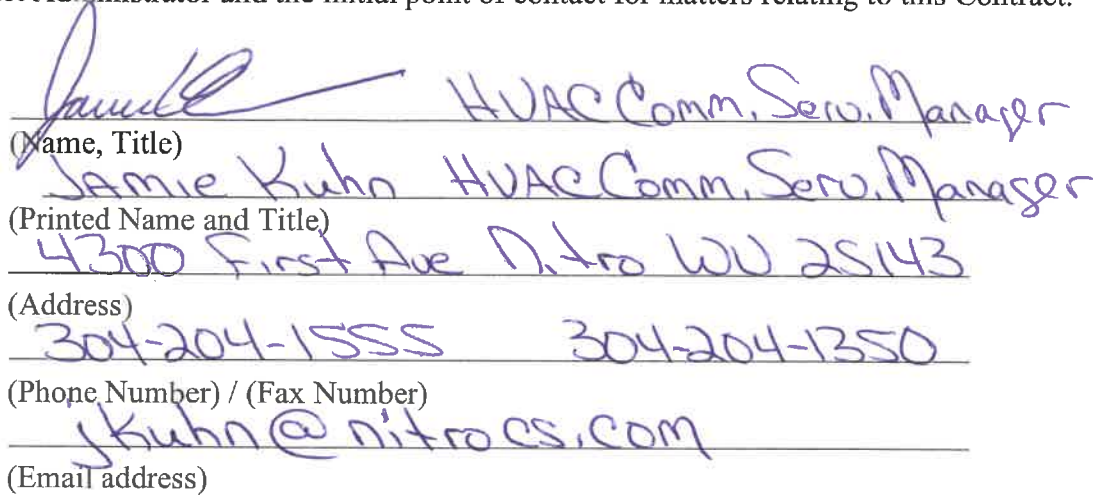 Administrator and the initial point of contact for matters relating to this Contract.
HVAC Comm. Serv. Manager
(Name, Title)
Jamie Kuhn HVAC Comm. Serv. Manager
(Printed Name and Title)
4300 First Ave Nitro WV 25143
(Address)
304-204-1555 304-204-1350
(Phone Number) / (Fax Number)
jkuhn@nitrocs.com
(Email address)